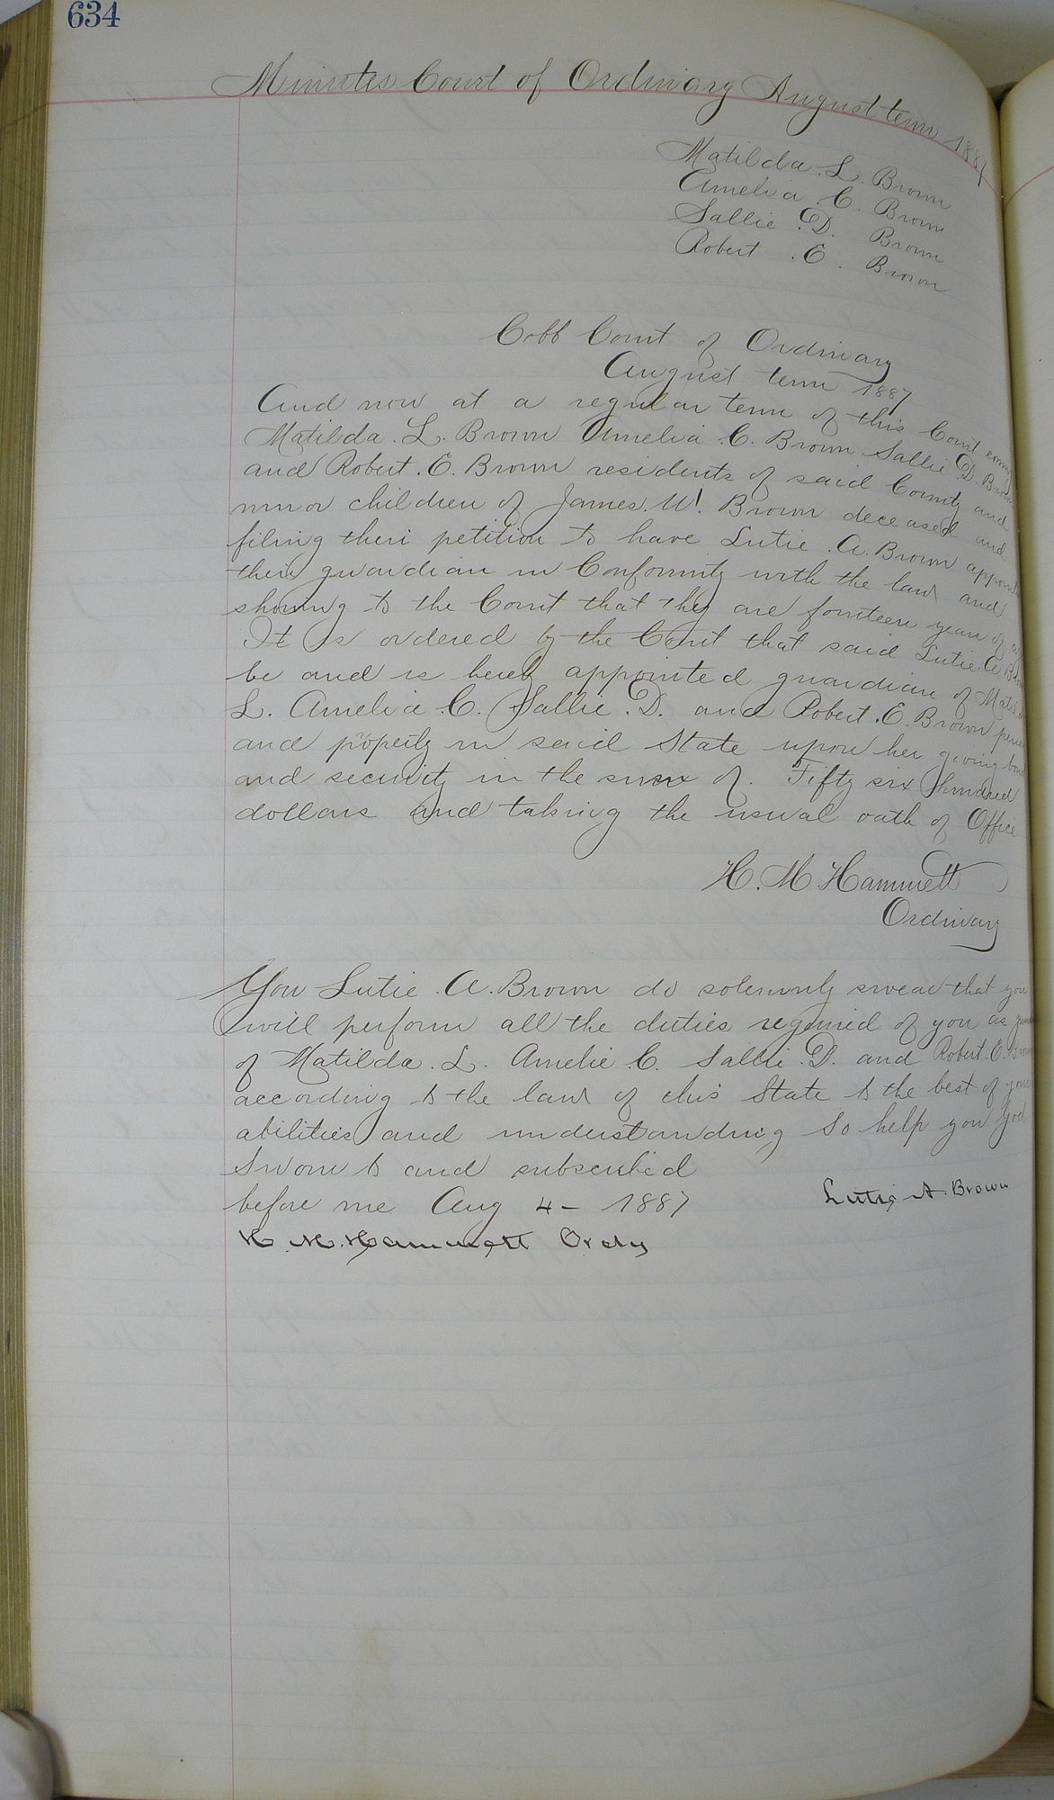 634
Minutes Court of Ordinary August term 1887
Matilda. L. Brown
Amelia. C. Brown
Sallie. D. Brown
Robert. E. Brown
Cobb Court of Ordinary
August term 1887
And now at a regular term of this Court comes
Matilda. L. Brown Amelia C. Brown Sallie D. Brown
and Robert. E. Brown residents of said County and
minor children of James. W. Brown deceased and
filing their petition to have Lutie. A. Brown appointed
their guardian in Conformity with the law and
showing to the Court that they are fourteen years of
It is ordered by the Court that said Lutie. A. Brown
be and is hereby appointed guardian of Matilda
L. Amelia. C. Sallie. D. and Robert. E. Brown person
and property in said State upon her giving bond
and security in the sum of. Fifty six Hundred
dollars and taking the usual oath of Office
H. M. Hammett
Ordinary
You Lutie. A. Brown do solemnly swear that you
will perform all the duties required of you as
of Matilda. L. Amelie C. Sallie. D. and Robert. E. Brown
according to the law of this State to the best of your
abilities and understanding So help you God
Sworn to and subscribed
before me Aug 4 - 1887
Lutie A. Brown
H. M. Hammett Ordy